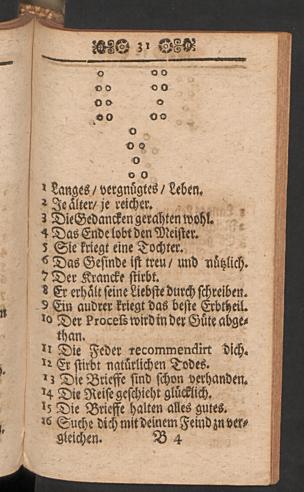 31
1 Langes / vergnügtes / Leben.
2 Je älter / je reicher.
3 Die Gedancken gerahten wohl.
4 Das Ende lobt den Meister.
5 Sie kriegt eine Tochter.
6 Das Gesinde ist treu / und nützlich.
7 Der Krancke stirbt.
8 Er erhält seine Liebste durch schreiben.
9 Ein andrer kriegt das beste Erbtheil.
10 Der Process wird in der Güte abge-
than.
11 Die Feder recommendirt dich.
12 Er stirbt natürlichen Todes.
13 Die Brieffe sind schon verhanden.
14 Die Reise geschieht glücklich.
15 Die Brieffe halten alles gutes.
16 Suche dich mit deinem Feind zu ver-
gleichen.
B 4